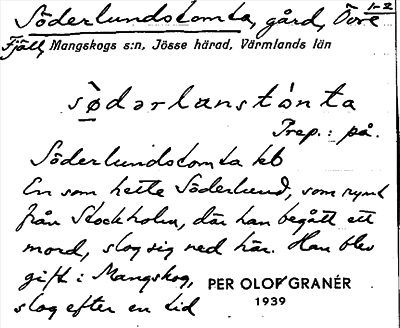 Söderlundstomta, gård, Övre 1-2
Fjäll, Mangskogs s:n, Jösse härad, Värmlands län
sö̀darlanstómta
Prep.: på.
Söderlundstomta kb
En som hette Söderlund, som rymt
från Stockholm, där han begått ett
mord, slog sig ned här. Han blev
gift i Mangskog,
slog efter en tid
PER OLOF GRANÉR
1939